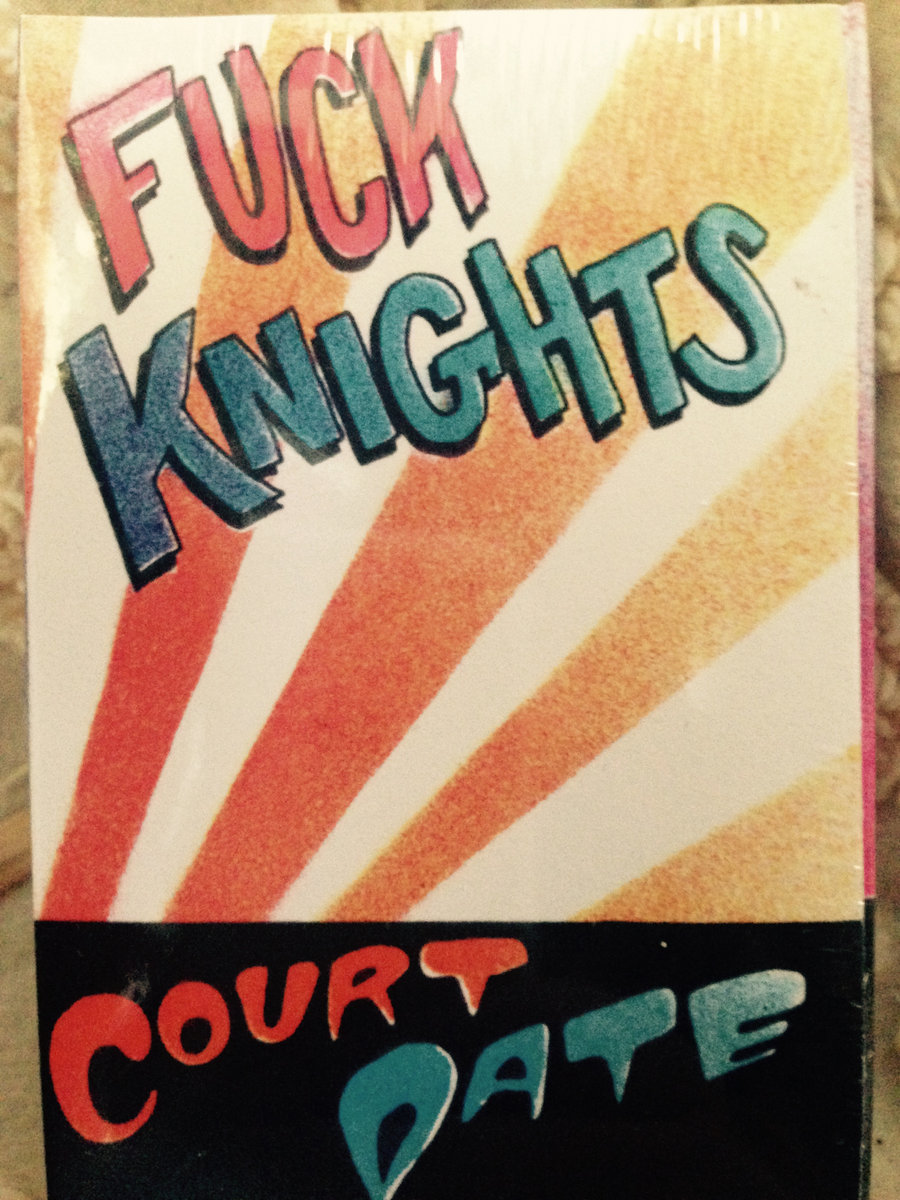 FUCK
KNIGHTS
COURT
DATE